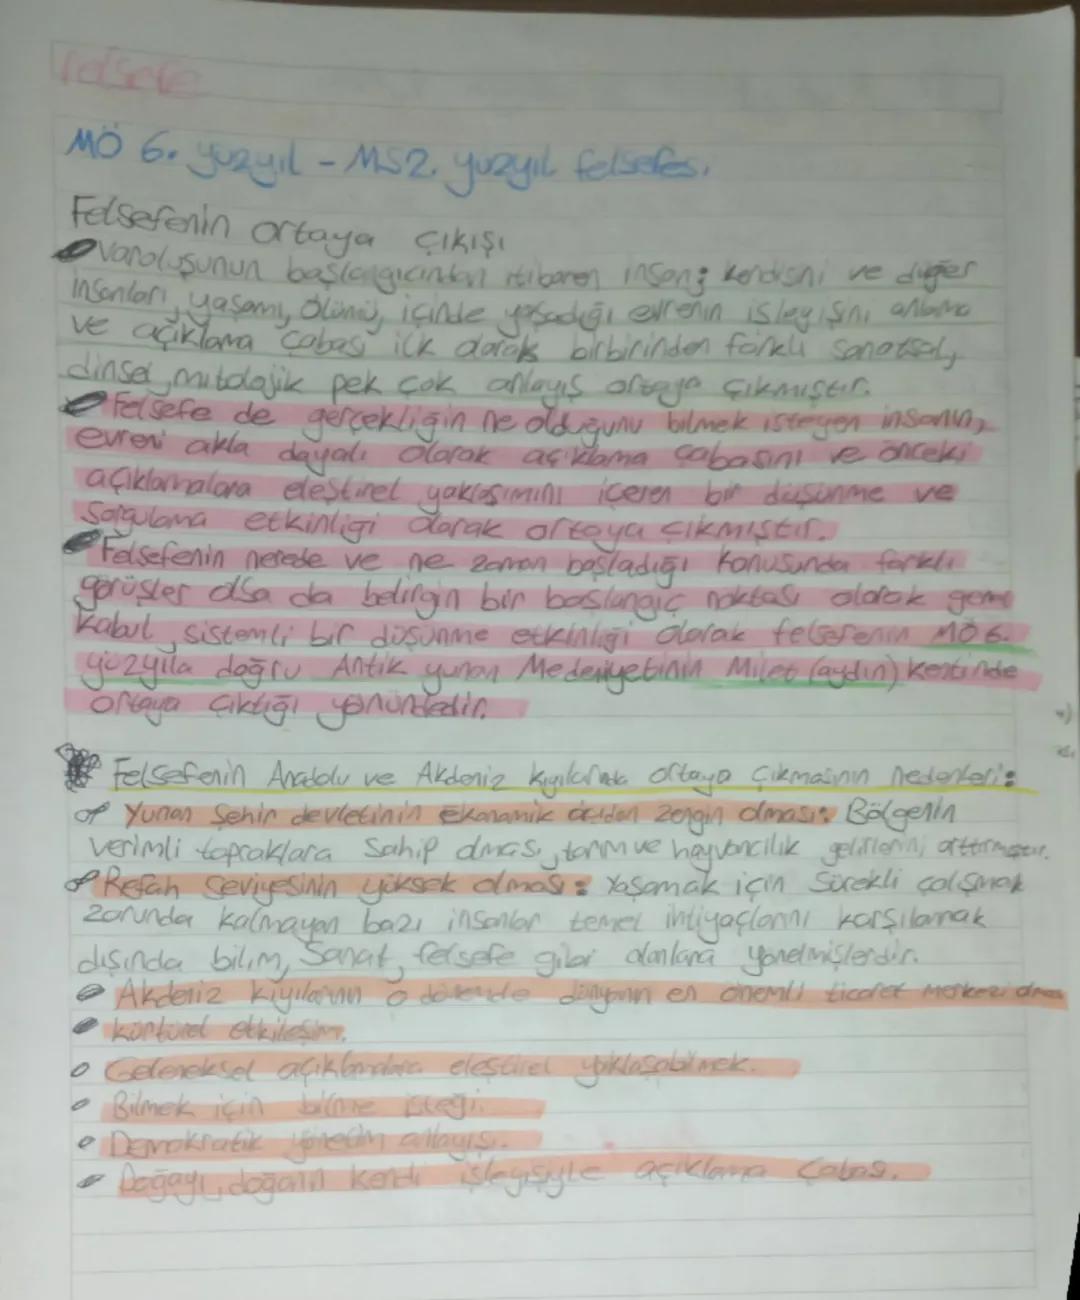 Felsefe
MÖ 6. yüzyıl - MS2. yüzyıl felsefes.
Felsefenin ortaya çıkışı
Varoluşunun başlangıcından itibaren insan; kendisni ve diğer
insanları, yaşamı, ölümü, içinde yaşadığı evrenin işleyişini anlama
ve açıklama çabası ilk olarak birbirinden farklı sanatsal,
dinsel, mitolojik pek çok anlayış ortaya çıkmıştır.
Felsefe de gerçekliğin ne olduğunu bilmek isteyen insanın,
evreni akla dayalı olarak açıklama çabasını ve önceki
açıklamalara eleştirel yaklaşımını içeren bir düşünme ve
sorgulama etkinliği olarak ortaya çıkmıştır.
Felsefenin nerede ve ne zaman başladığı konusunda farklı
görüşler olsa da belirgin bir başlangıç noktası olarak genel
kabul, sistemli bir düşünme etkinliği olarak felsefenin MÖ 6.
yüzyıla doğru Antik yunan Medeniyetinin Milet (aydın) kentinde
ortaya çıktığı yönündedir.
Felsefenin Anadolu ve Akdeniz kıyılarında ortaya çıkmasının nedenleri:
Yunan Şehir devletinin ekonomik açıdan zengin olması: Bölgenin
verimli topraklara sahip olması, tarım ve hayvancılık gelirlerini arttırmıştır.
Refah seviyesinin yüksek olması: Yaşamak için sürekli çalışmak
zorunda kalmayan bazı insanlar temel ihtiyaçlarını karşılamak
dışında bilim, Sanat, felsefe gibi alanlara yönelmişlerdir.
Akdeniz kıyılarının o dönemde dünyanın en önemli ticaret merkezi olması
kültürel etkileşim.
Geleneksel açıklamalara eleştirel yaklaşabilmek.
Bilmek için bilme isteği.
Demokratik yönetim anlayışı.
Doğayı, doğanın kendi işleyişiyle açıklama çabası.